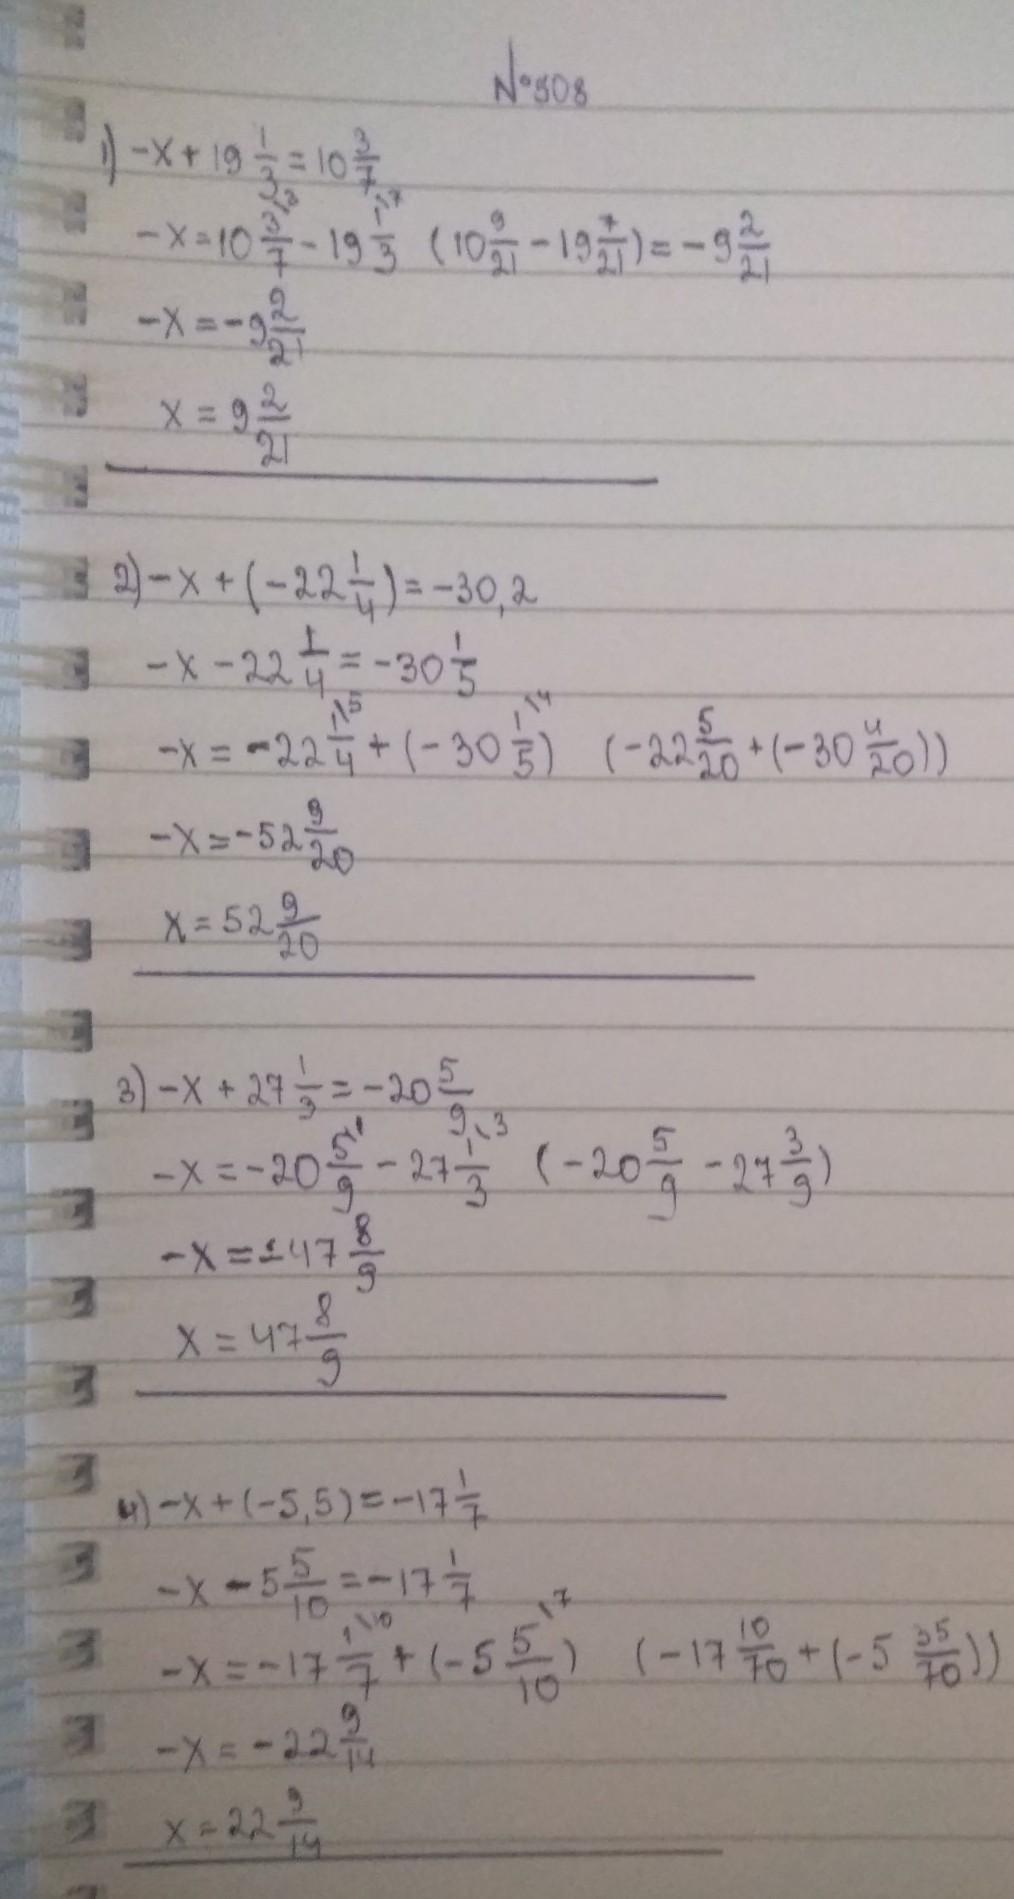 №308
1) -x + 19 1/3 = 10 3/7
-x = 10 3/7 \3 - 19 1/3 \7 (10 9/21 - 19 7/21) = -9 2/21
-x = -9 2/21
x = 9 2/21
2) -x + (-22 1/4) = -30,2
-x - 22 1/4 = -30 1/5
-x = -22 1/4 \5 + (-30 1/5 \4) (-22 5/20 + (-30 4/20))
-x = -52 9/20
x = 52 9/20
3) -x + 27 1/3 = -20 5/9
-x = -20 5/9 \1 - 27 1/3 \3 (-20 5/9 - 27 3/9)
-x = -47 8/9
x = 47 8/9
4) -x + (-5,5) = -17 1/7
-x - 5 5/10 = -17 1/7
-x = -17 1/7 \10 + (-5 5/10 \7) (-17 10/70 + (-5 35/70))
-x = -22 9/14
x = 22 9/14